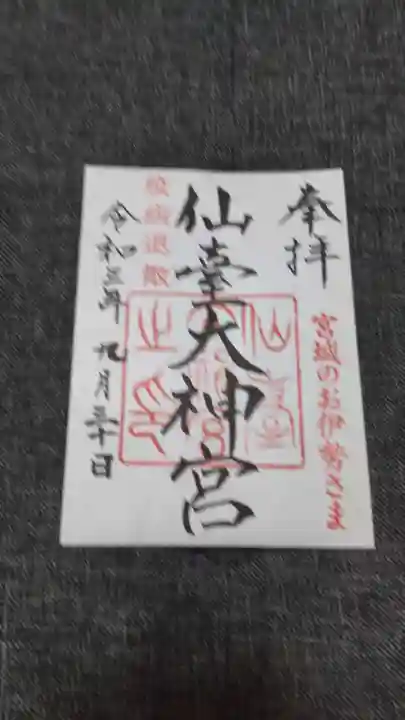 奉拝
宮城のお伊勢さま
仙臺大神宮
疫病退散
令和三年 九月三十日